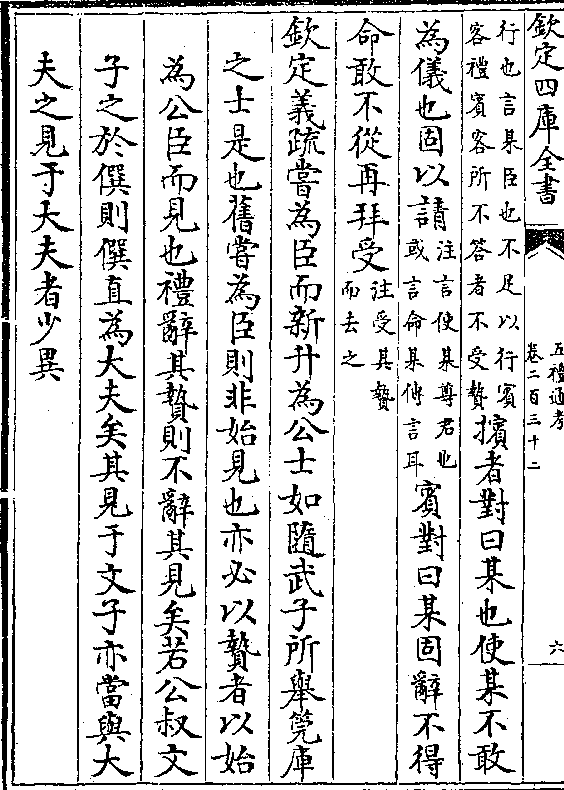 欽定四庫全書
五禮通考
卷二百三十二
六
行也言某臣也不足以行賓
客禮賓客所不答者不受贄
擯者對曰某也使某不敢
為儀也固以請
注言使某尊君也
或言命某傳言耳
賓對曰某固辭不得
命敢不從再拜受
注受其贄
而去之
欽定義疏嘗為臣而新升為公士如隨武子所舉筦庫
之士是也舊嘗為臣則非始見也亦必以贄者以始
為公臣而見也禮辭其贄則不辭其見矣若公叔文
子之於僎則僎直為大夫矣其見于文子亦當與大
夫之見于大夫者少異